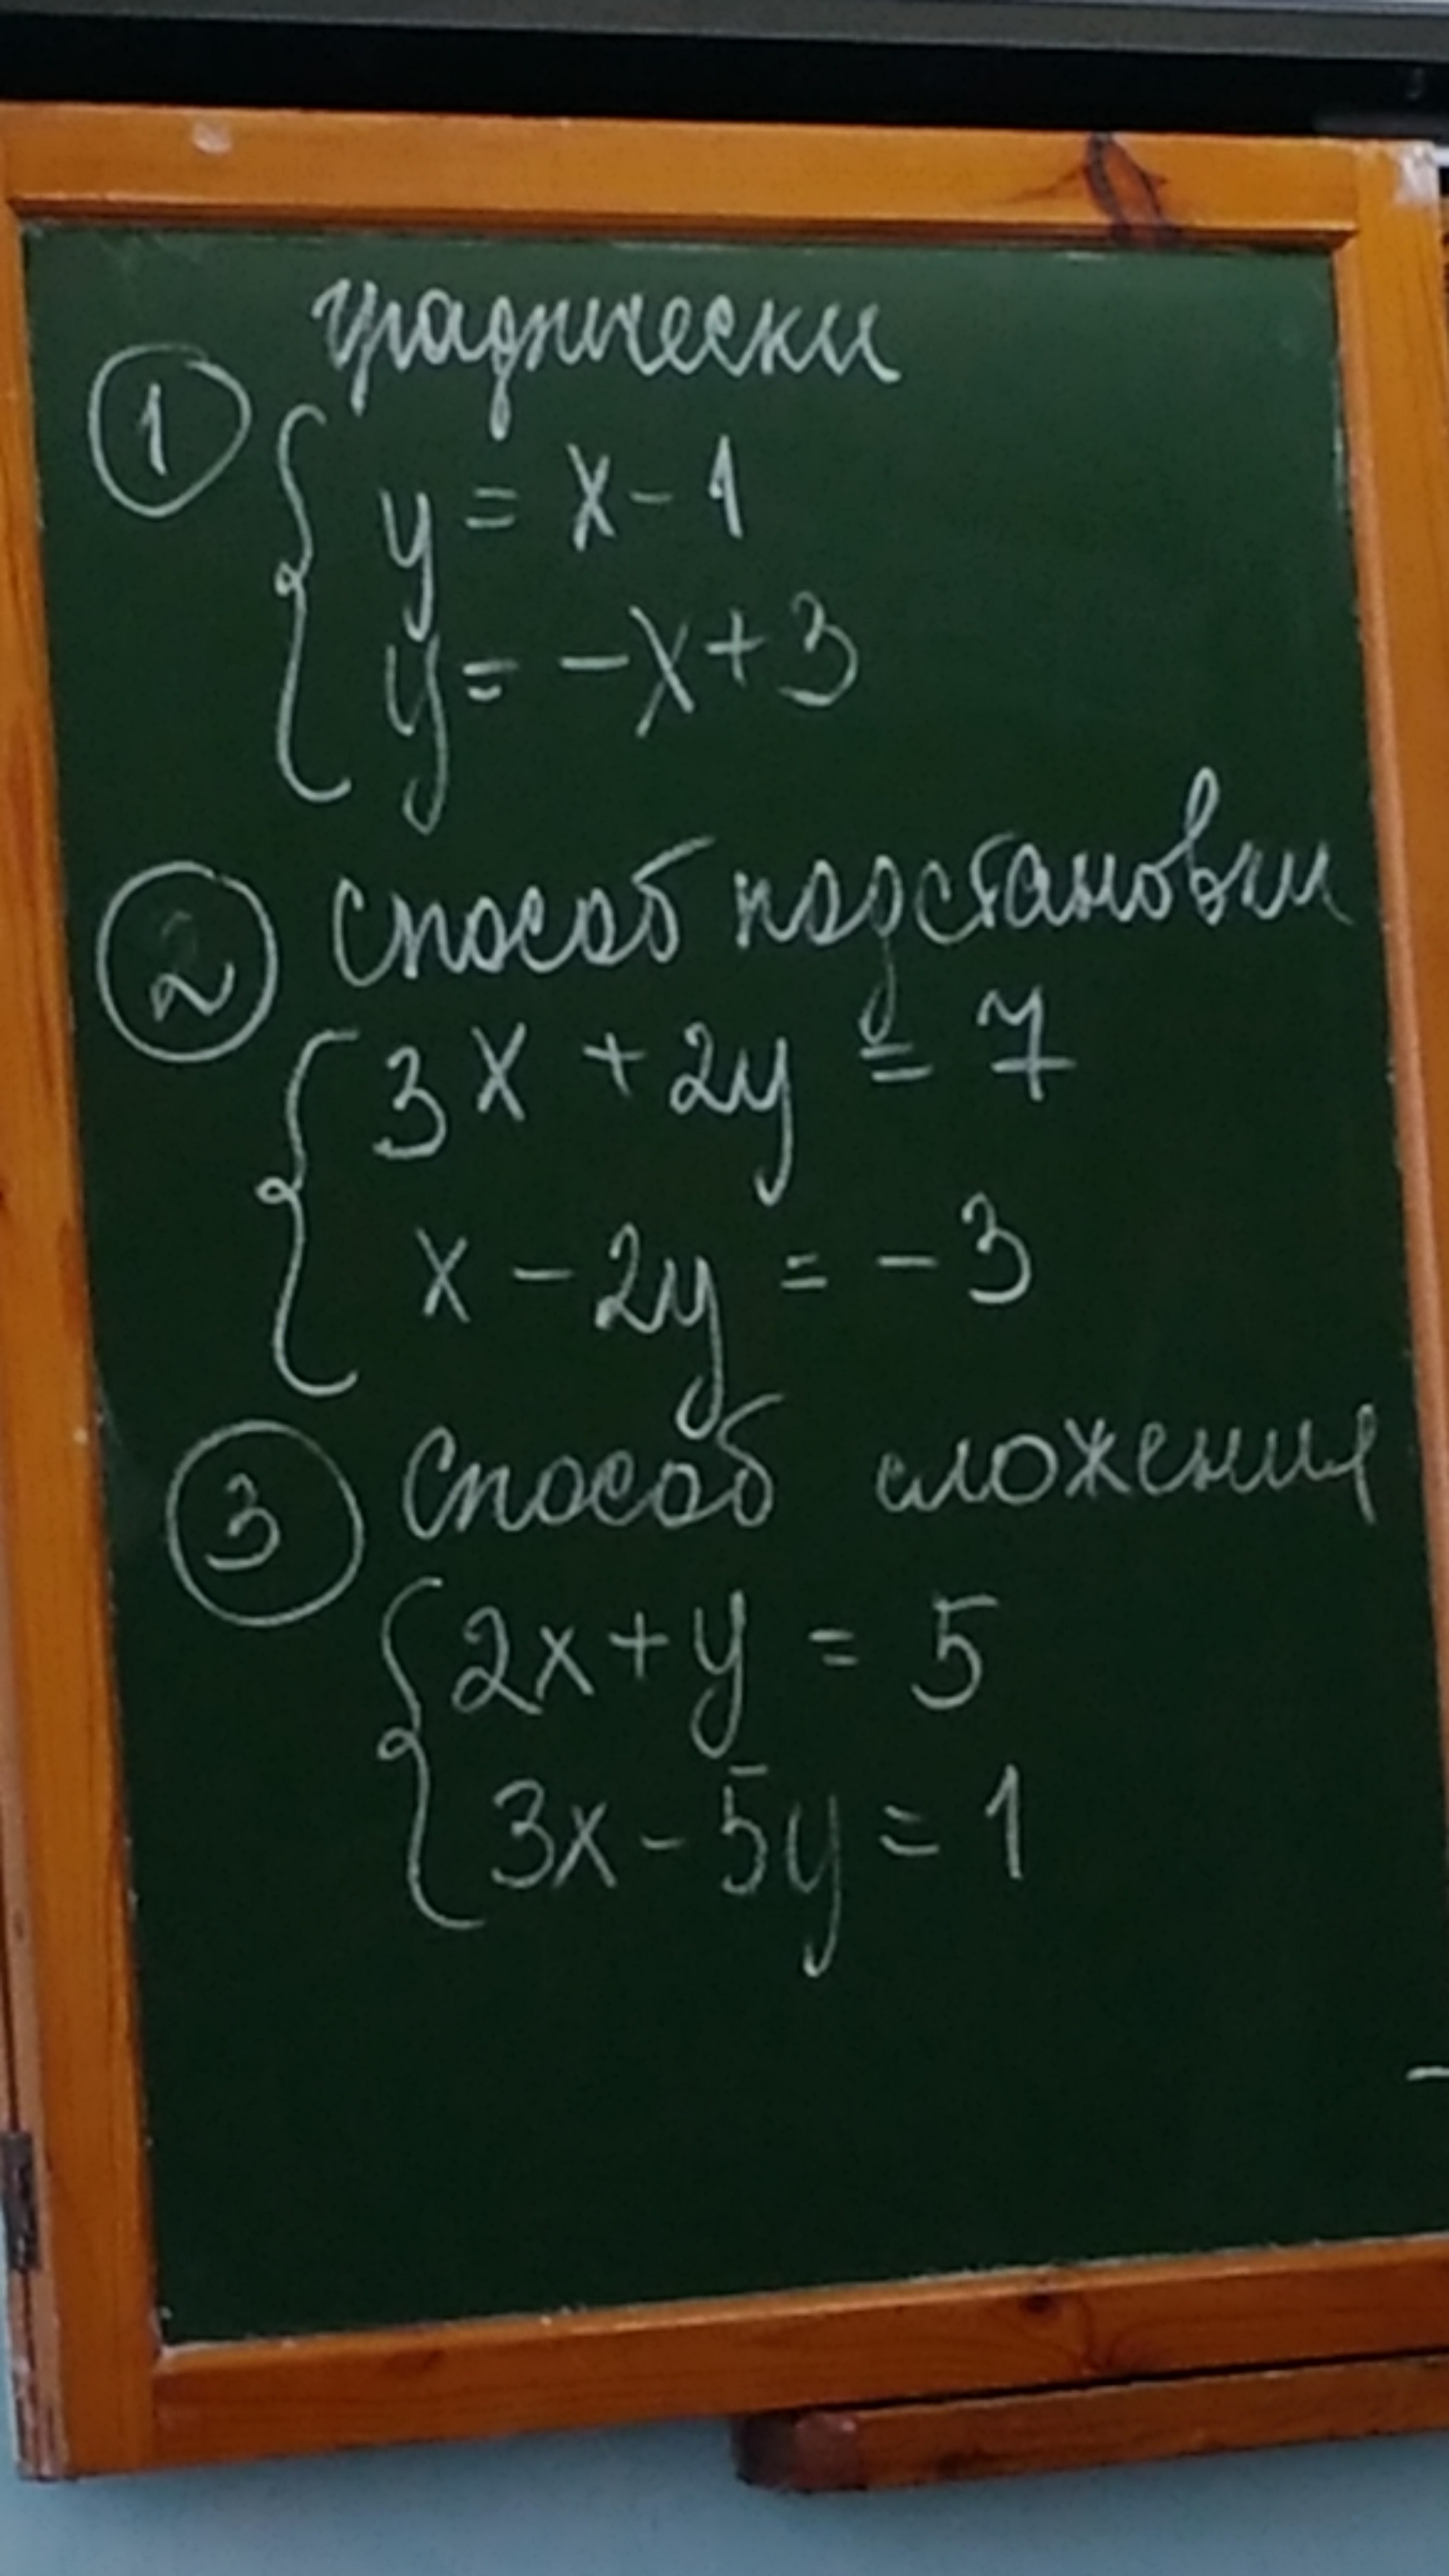 графически
① { y = x - 1
y = -x + 3
② способ подстановки
{ 3x + 2y = 7
x - 2y = -3
③ способ сложения
{ 2x + y = 5
3x - 5y = 1